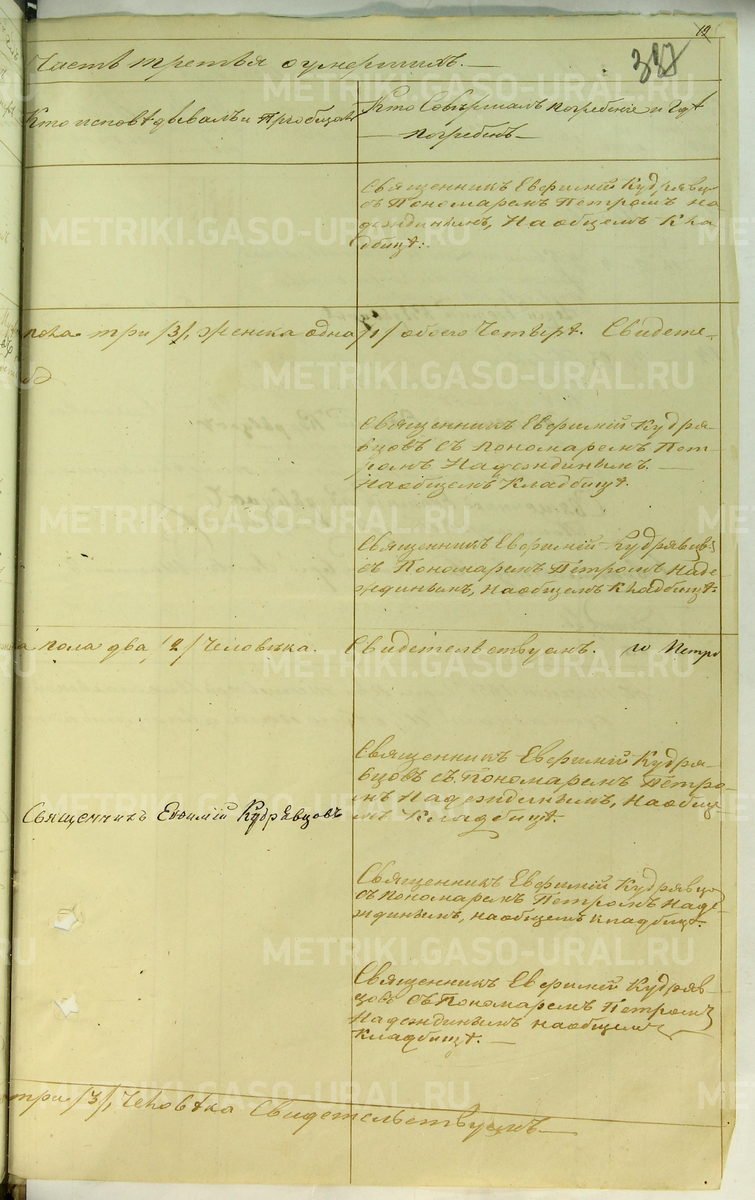 12
337
Часть третья о умершихъ.
Кто исповѣдывалъ и Прiобщалъ
Кто Совѣршалъ погребенiе и гдѣ
погребенъ
Священникъ Евфимiй Кудрявцо
съ Пономаремъ Петромъ На
дежинымъ, На общемъ Кла
дбищѣ.
пола три /3/, женска одна /1/ обоего Четыре. Свидете-
Священникъ Евфимiй Кудря-
вцовъ съ пономаремъ Пет-
ромъ Надеждинымъ
на общемъ Кладбищѣ.
Священникъ Евфимiй Кудрявцо
съ Пономаремъ Петромъ Наде
ждинымъ, на общемъ Кладбищѣ
пола два /2/ Человѣка. Свидетельствуемъ.
Священникъ Евфимiй Кудря-
вцовъ съ пономаремъ Петро-
мъ Надеждинымъ, На общ
мъ Кладбищѣ.
Священникъ Евѳимiй Кудрявцовъ
Священникъ Евфимiй Кудрявцо
съ Пономаремъ Петромъ Наде-
ждинымъ, на общемъ кладбищѣ.
Священникъ Евфимiй Кудряв-
цовъ съ Пономаремъ Петромъ
Надеждинымъ на общемъ
Кладбищѣ.
три /3/, Человѣка Свидетельствуемъ
METRIKI.GASO-URAL.RU